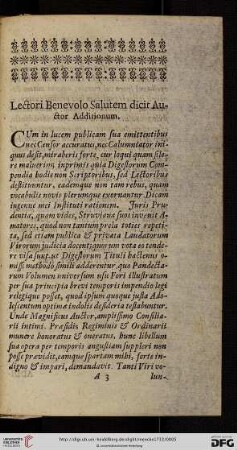 Lectori Benevolo Salutem dicit Au-
ctor Additionum.
CUm in lucem publicam sua emittentibus
nec Censor accuratus, nec Calumniator ini-
quus desit, miraberis forte, cur loqui quam sile-
re maluerim, inprimis quia Digestorum Com-
pendia hodie non Scriptoribus, sed Lectoribus
destituuntur, eademque non tam rebus, quam
vocabulis novis plerumque exornentur. Dicam
ingenue mei instituti rationem. Juris Pru-
dentia, quam vides, Struviana suos invenit A-
matores, quod non tantum prola toties repeti-
ta, sed etiam publica & privata Laudatorum
Virorum judicia docent; quae non vota eo tende-
re visa sunt, ut Digestorum Tituli hactenus o-
missi methodo simili adderentur quo Pandecta-
rum Volumen universum usu Fori illustratum
per sua principia brevi temporis impendio legi
relegique posset, quod ipsum quoque justa Ado-
lescentum optimae indolis desideria testabantur.
Unde Magnificus Auctor, amplissimo Consilia-
rii intimi, Praesidis Regiminis & Ordinarii
munere honoratus & oneratus, hunc libellum
sua opera per temporis angustiam suppleri non
posse praevidit, eamque spartam mihi, forte in-
digno & impari, demandavit. Tanti Viri vo-
A 3 lun-
http://digi.ub.uni-heidelberg.de/diglit/struve
© Universitätsbibliothek Heidelberg
UNIVERSITÄTS-
BIBLIOTHEK
HEIDELBERG
Gefördert durch die
DFG